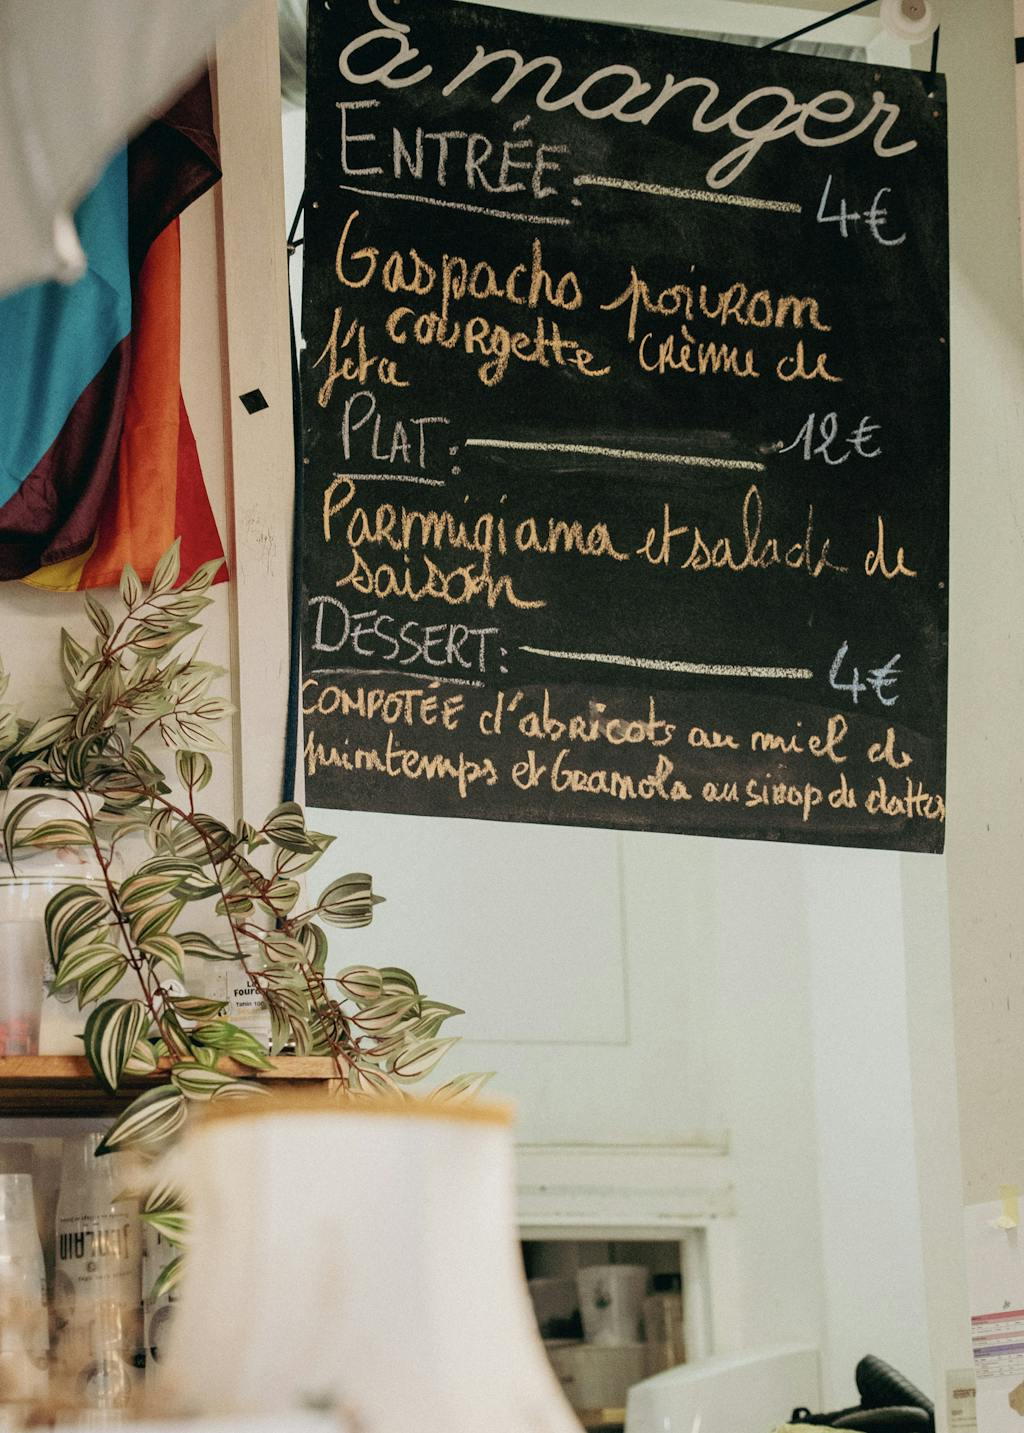 à manger
ENTRÉE: 4€
Gaspacho poivron
courgette crème de
féta
PLAT: 12€
Parmigiana et salade de
saison
DESSERT: 4€
COMPOTÉE d'abricots au miel de
printemps et Granola au sirop de dattes
JENLAIN